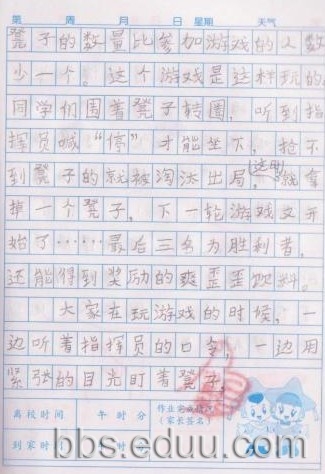 第 周 月 日 星期 天气
凳子的数量比参加游戏的人数
少一个。这个游戏是这样玩的
同学们围着凳子转圈，听到指
挥员喊“停”才能坐下，抢不
到凳子的就被淘汰出局，(这时)就拿
掉一个凳子，下一轮游戏又开
始了……最后三名为胜利者，
还能得到奖励的爽歪歪饮料。
大家在玩游戏的时候，一
边听着指挥员的口令，一边用
紧张的目光盯着凳子，
离校时间 午 时 分 作业完成情况
(家长签名)
到家时间 午 时 分
bbs.eduu.com